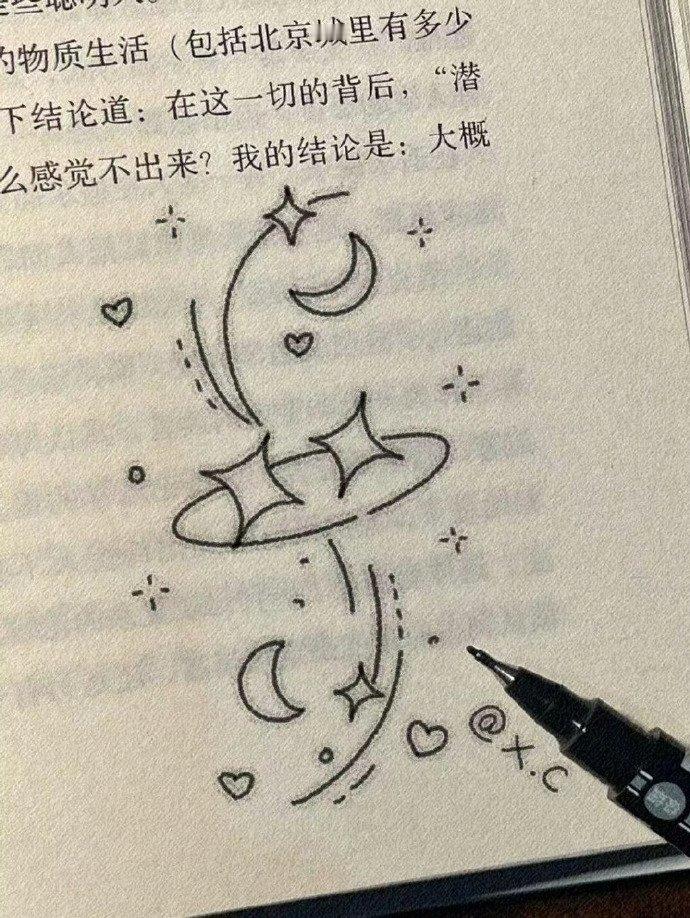 的物质生活（包括北京城里有多少
下结论道：在这一切的背后，“潜
么感觉不出来？我的结论是：大概
@X.C